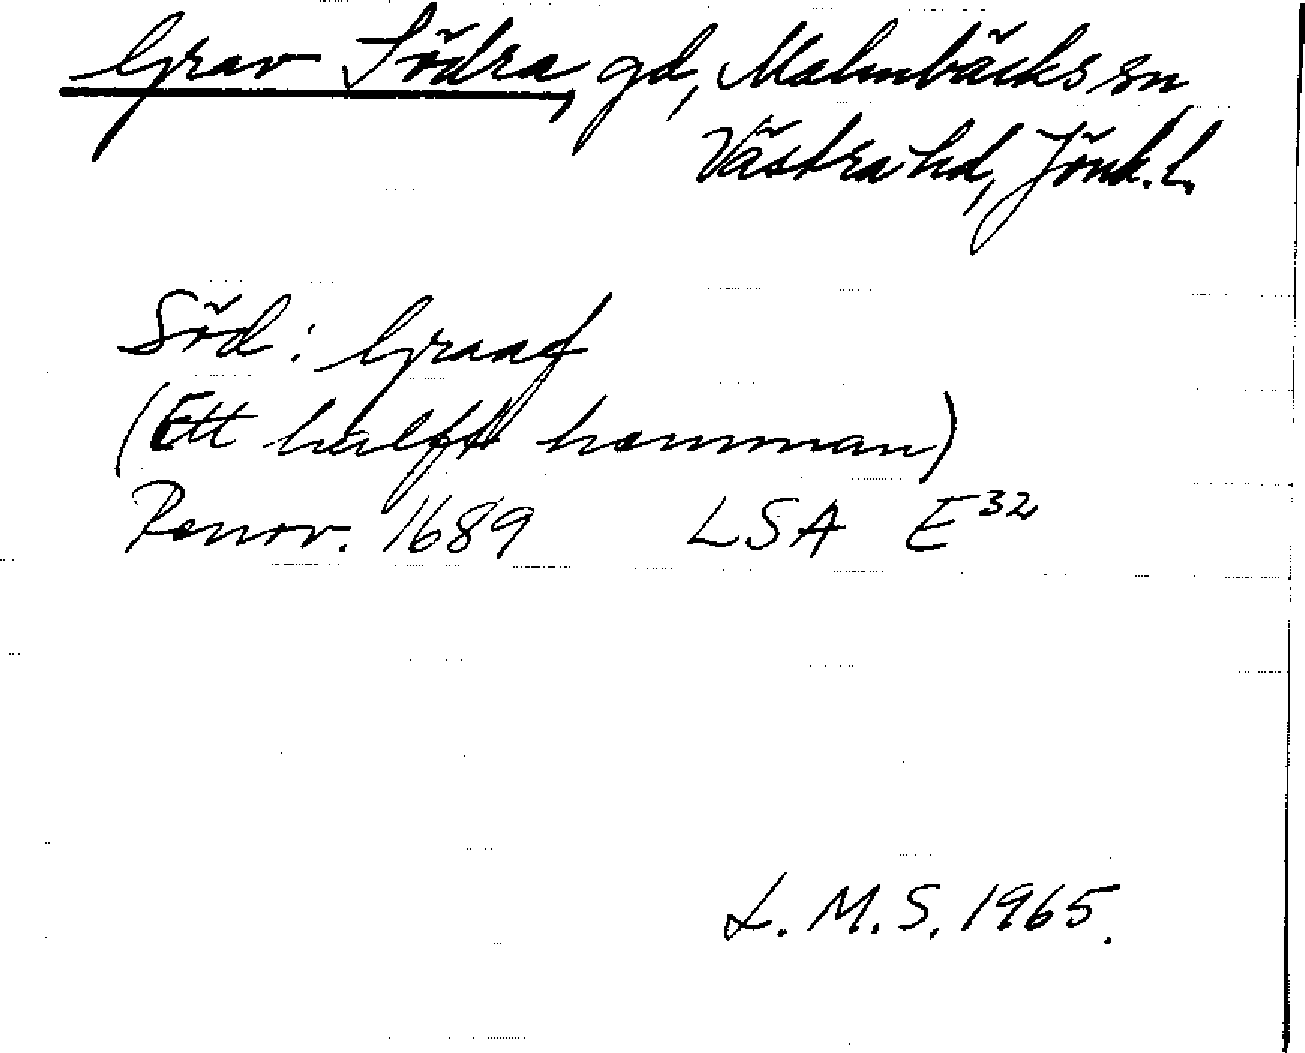 Grav Södra, gd, Malmbäcks sn
Västra hd, Jönk. l.
Söd: Graaf
(Ett halfft hemman)
Renov. 1689 LSA E³²
L. M. S. 1965.